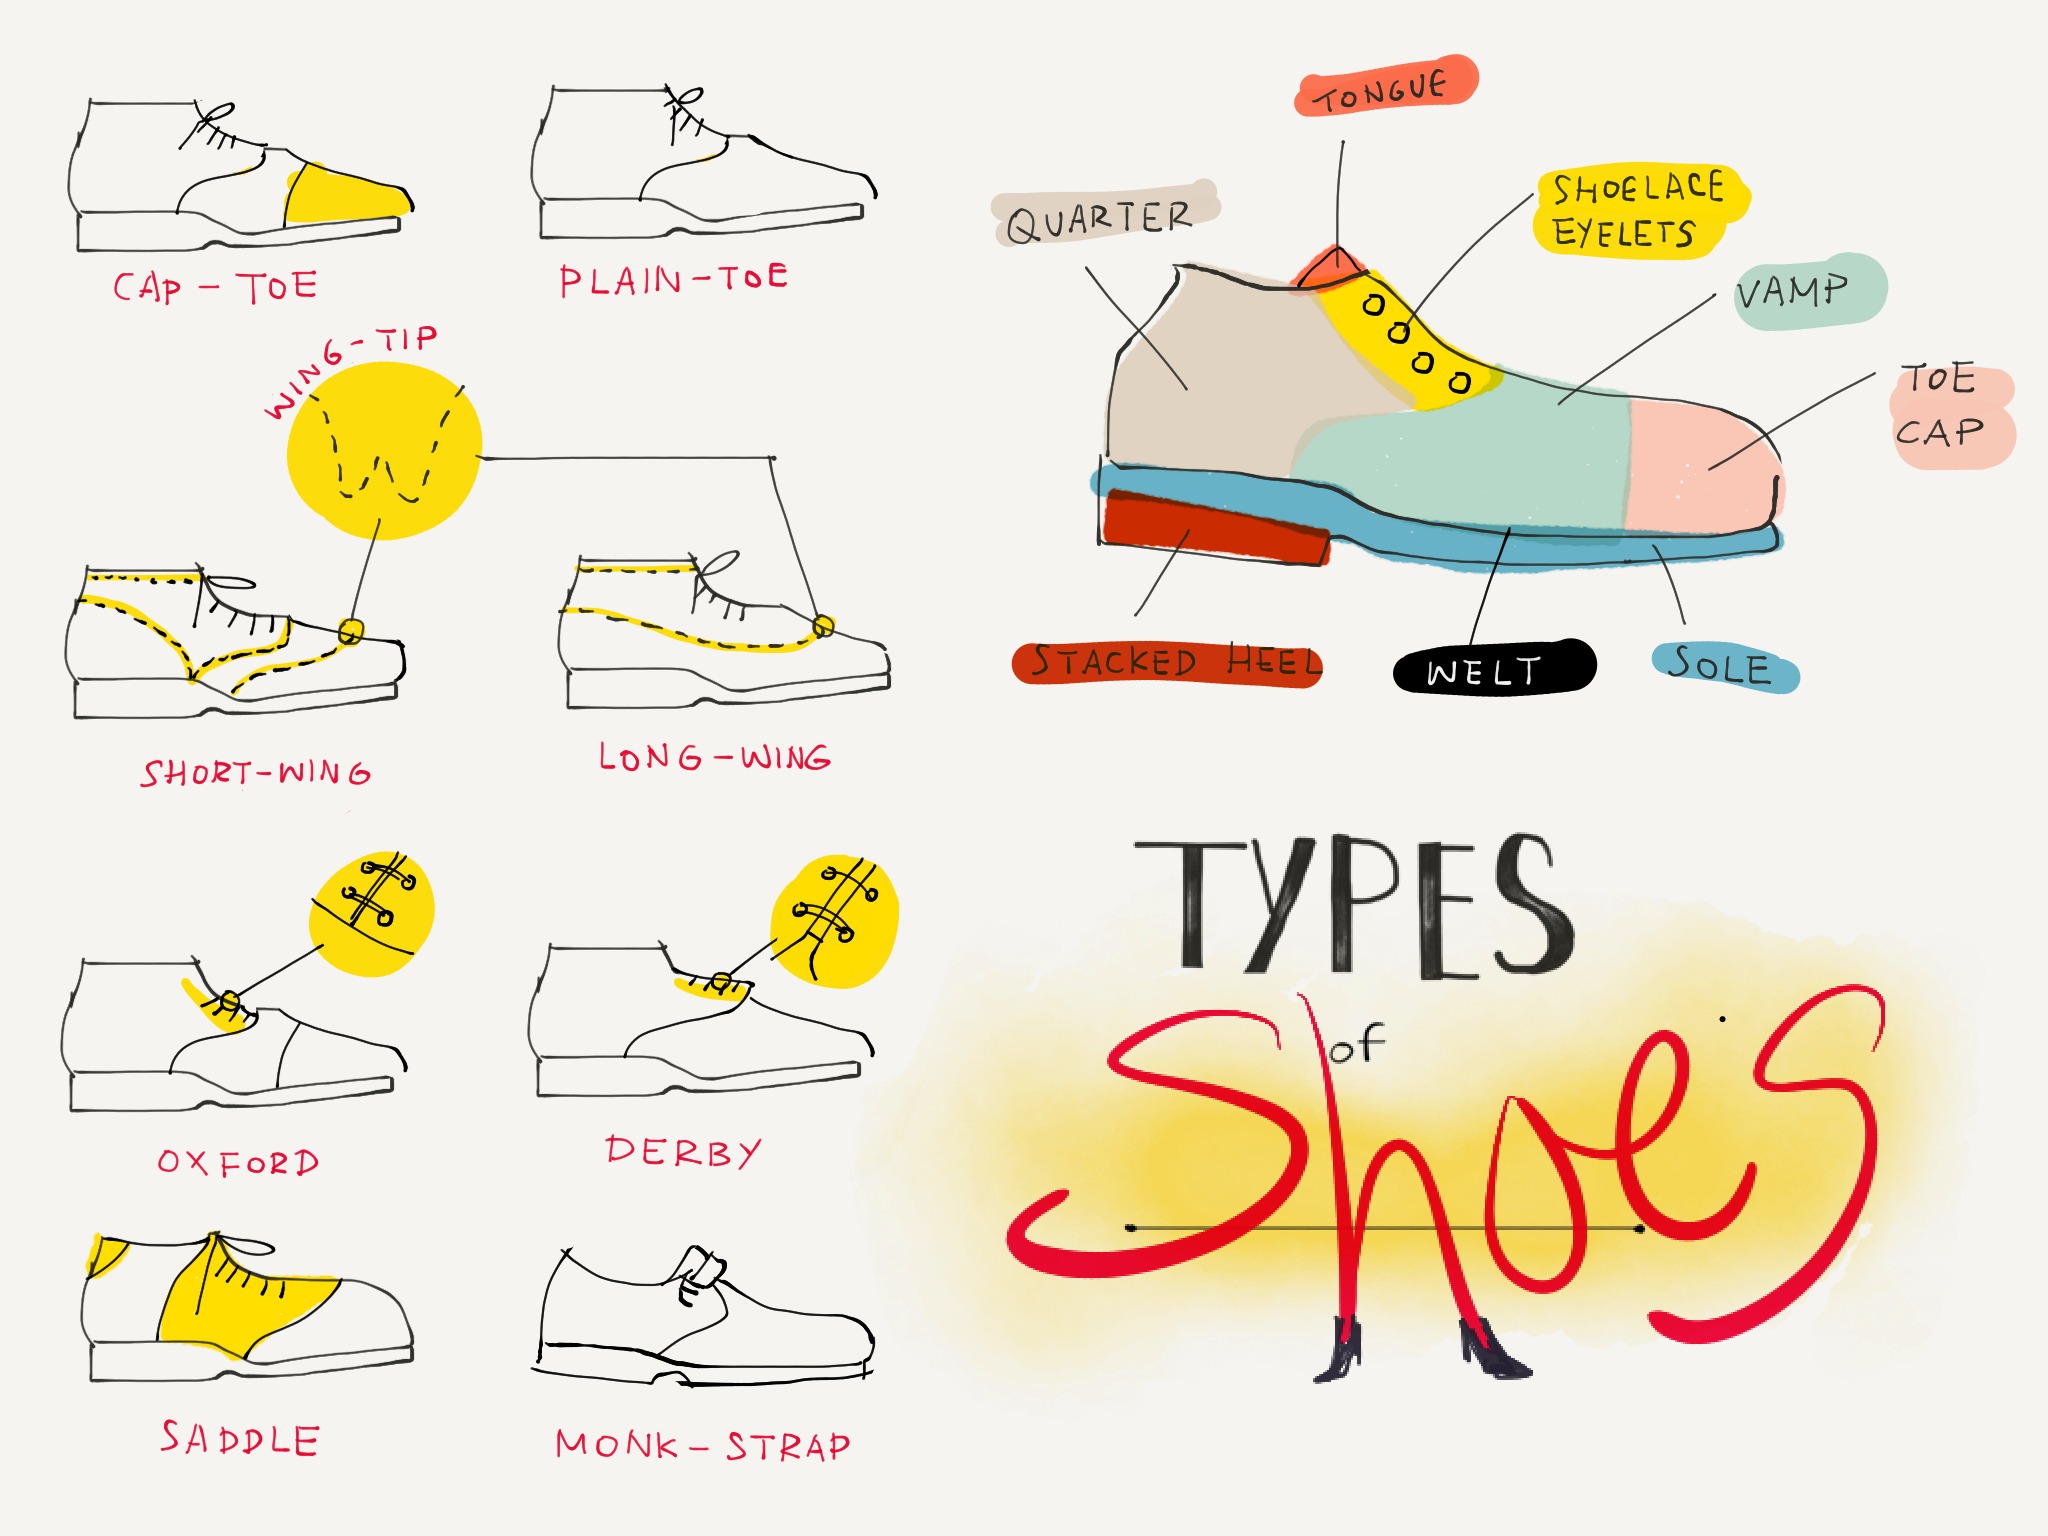 CAP-TOE
PLAIN-TOE
WING-TIP
SHORT-WING
LONG-WING
OXFORD
DERBY
SADDLE
MONK-STRAP
TONGUE
QUARTER
SHOELACE
EYELETS
VAMP
TOE
CAP
STACKED HEEL
WELT
SOLE
TYPES
of
Shoes